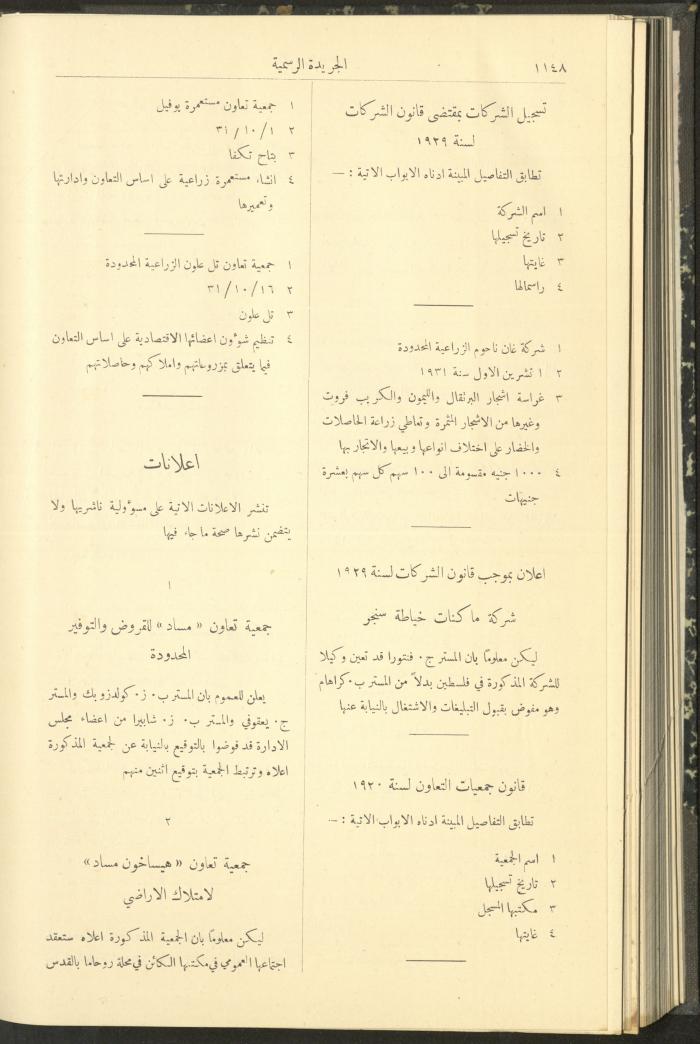 ١١٤٨
الجريدة الرسمية
تسجيل الشركات بمقتضى قانون الشركات
لسنة ١٩٢٩
تطابق التفاصيل المبينة ادناه الابواب الاتية : —
١ اسم الشركة
٢ تاريخ تسجيلها
٣ غايتها
٤ راسمالها
١ شركة غان ناحوم الزراعية المحدودة
٢ ١ تشرين الاول سنة ١٩٣١
٣ غراسة اشجار البرتقال والليمون والكريب فروت
وغيرها من الاشجار المثمرة وتعاطي زراعة الحاصلات
والخضار على اختلاف انواعها وبيعها والاتجار بها
٤ ١٠٠٠ جنيه مقسومة الى ١٠٠ سهم كل سهم بعشرة
جنيهات
اعلان بموجب قانون الشركات لسنة ١٩٢٩
شركة ماكنات خياطة سنجر
ليكن معلوماً بان المستر ج٠ فنتورا قد تعين وكيلا
للشركة المذكورة في فلسطين بدلاً من المستر ب٠ كراهام
وهو مفوض بقبول التبليغات والاشتغال بالنيابة عنها
قانون جمعيات التعاون لسنة ١٩٢٠
تطابق التفاصيل المبينة ادناه الابواب الاتية : —
١ اسم الجمعية
٢ تاريخ تسجيلها
٣ مكتبها المسجل
٤ غايتها
١ جمعية تعاون مستعمرة يوفيل
٢ ١ / ١٠ / ٣١
٣ بتاح تكفا
٤ انشاء مستعمرة زراعية على اساس التعاون وادارتها
وتعميرها
١ جمعية تعاون تل علون الزراعية المحدودة
٢ ١٦ / ١٠ / ٣١
٣ تل علون
٤ تنظيم شوءون اعضائها الاقتصادية على اساس التعاون
فيما يتعلق بمزروعاتهم واملاكهم وحاصلاتهم
اعلانات
تنشر الاعلانات الاتية على مسوءولية ناشريها ولا
يتضمن نشرها صحة ما جاء فيها
١
جمعية تعاون « مساد » للقروض والتوفير
المحدودة
يعلن للعموم بان المستر ب٠ ز٠ كولدزوبك والمستر
ج٠ يعقوفي والمستر ب٠ ز٠ شابيرا من اعضاء مجلس
الادارة قد فوضوا بالتوقيع بالنيابة عن لجمعية المذكورة
اعلاه وترتبط الجمعية بتوقيع اثنين منهم
٢
جمعية تعاون « هيساخون مساد »
لامتلاك الاراضي
ليكن معلوماً بان الجمعية المذكورة اعلاه ستعقد
اجتماعها العمومي في مكتبها الكائن في محلة روحاما بالقدس